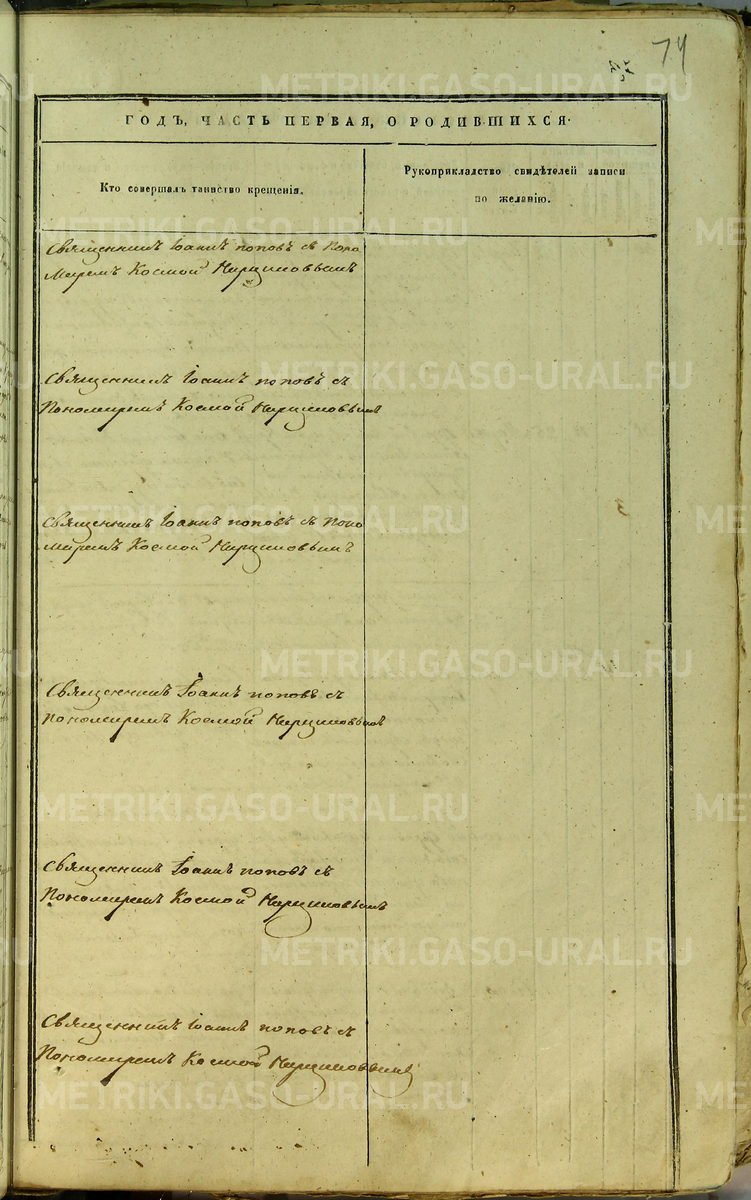 74
ГОДЪ, ЧАСТЬ ПЕРВАЯ, О РОДИВШИХСЯ.
Кто совершалъ таинство крещенія.
Рукоприкладство свидѣтелей записи
по желанію.
Священникъ Іоаннъ поповъ съ Поно
маремъ Космой
Священникъ Іоаннъ поповъ съ
Пономаремъ Космой
Священникъ Іоаннъ поповъ съ Поно
маремъ Космой
Священникъ Іоаннъ поповъ съ
пономаремъ Космой
Священникъ Іоаннъ поповъ съ
Пономаремъ Космой
Священникъ Іоаннъ поповъ съ
Пономаремъ Космой
METRIKI.GASO-URAL.RU